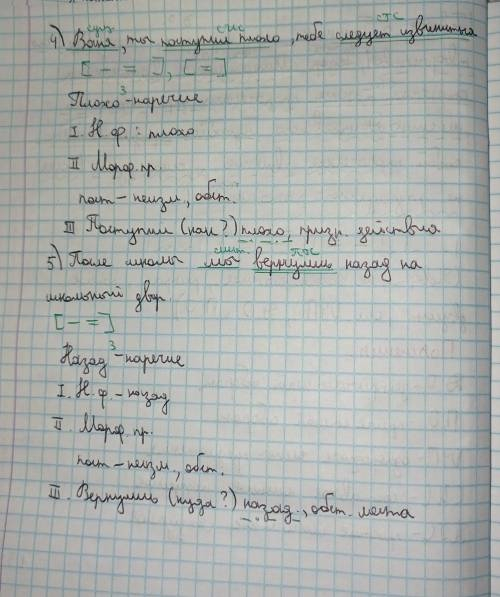 сущ. СГС СГС
4) Ваня, ты поступил плохо, тебе следует извиниться
[ – = ], [ = ]
Плохо³ - наречие
I. Н.ф.: плохо
II Морф. пр.
пост – неизм., обст.
III Поступил (как?) плохо, призн. действия
мест. ПГС
5) После школы мы вернулись назад на
школьный двор.
[ – = ]
Назад³ - наречие
I. Н.ф. - назад
II. Морф. пр.
пост – неизм., обст.
III. Вернулись (куда?) назад., обст. места